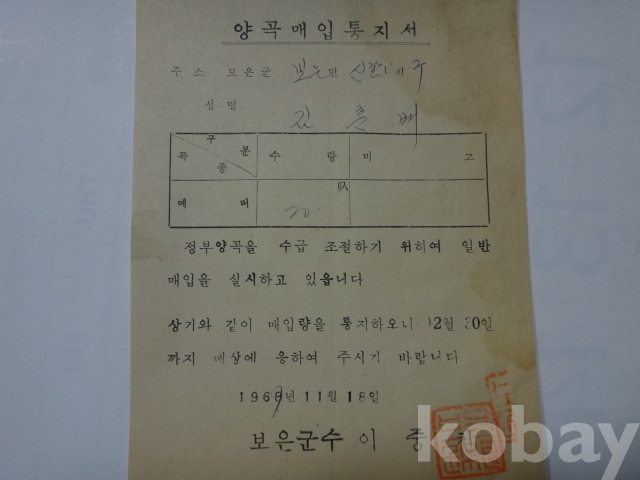 양곡매입통지서
주소 보은군 보은면 리 구
성명 김 배
구분
곡종
수량
비고
메벼
叺
20
정부양곡을 수급 조절하기 위하여 일반
매입을 실시하고 있읍니다
상기와 같이 매입량을 통지하오니 12월 30일
까지 매상에 응하여 주시기 바랍니다
196 년 11월 18일
보은군수 이 중
kobay